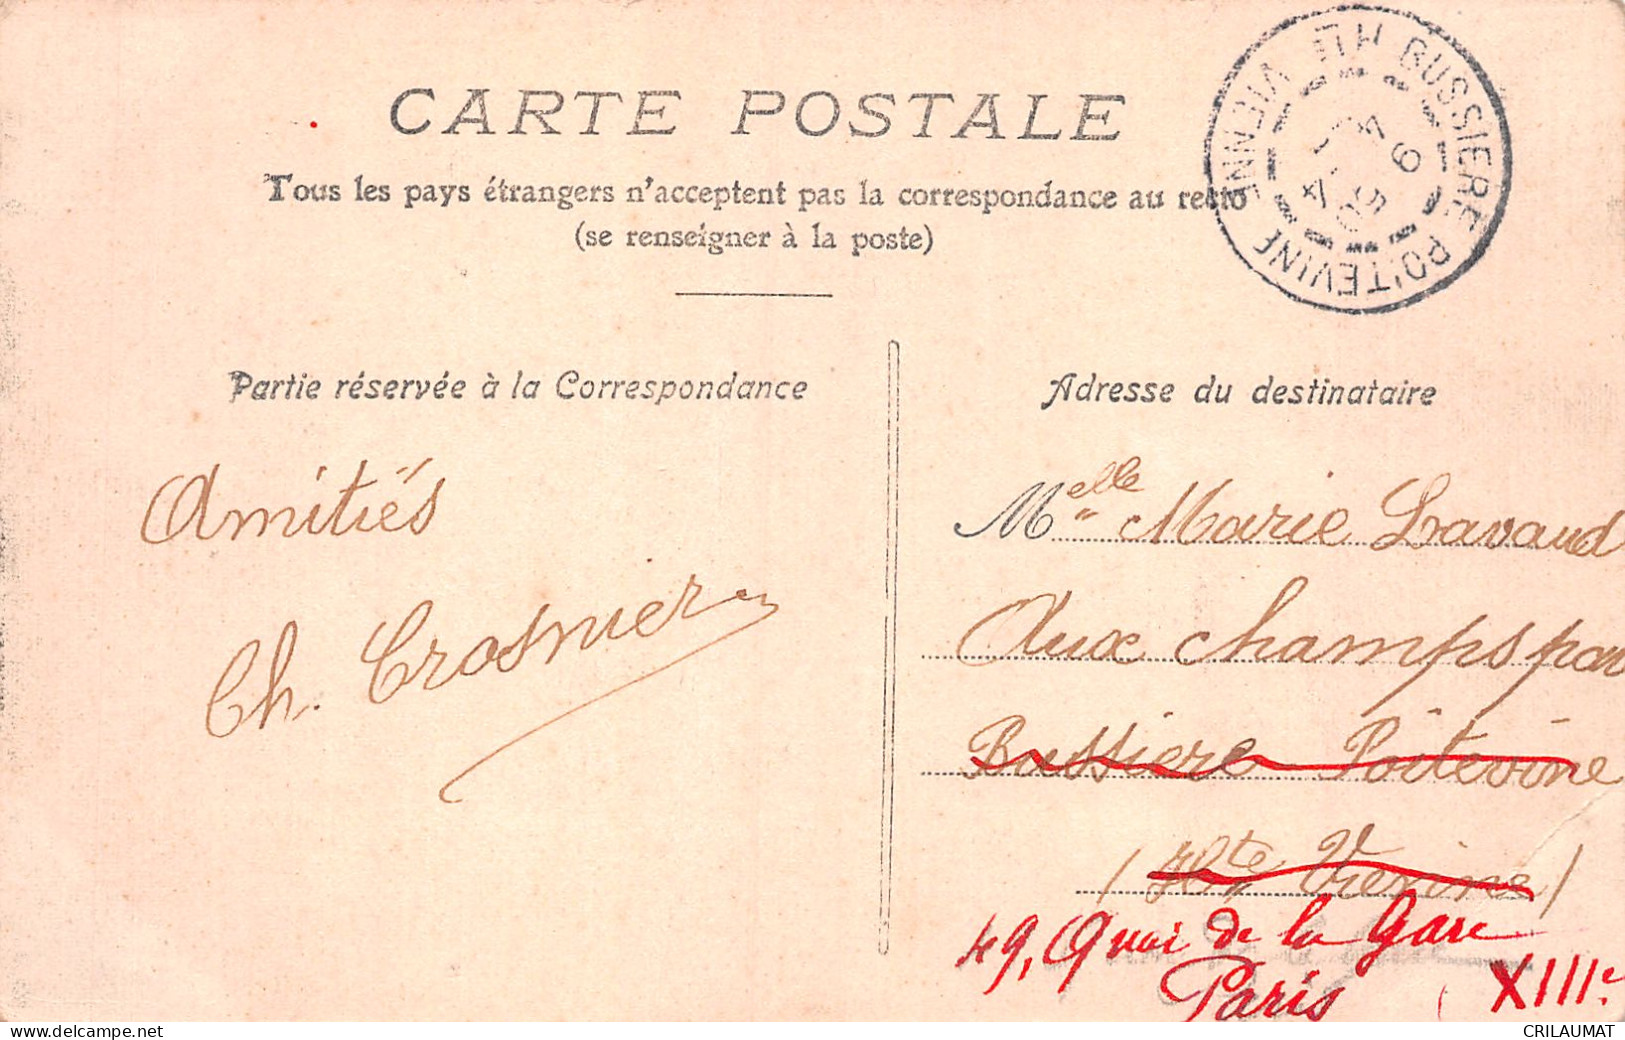 CARTE POSTALE
Tous les pays étrangers n'acceptent pas la correspondance au recto
(se renseigner à la poste)
BUSSIERE POITEVINE
HTE VIENNE
Partie réservée à la Correspondance
Amitiés
Ch. Crosnier
Adresse du destinataire
Melle Marie Lavaud
Aux champs par
Bussiere Poitevine
(Hte Vienne)
49, Quai de la Gare
Paris XIIIe.
www.delcampe.net
CRILAUMAT